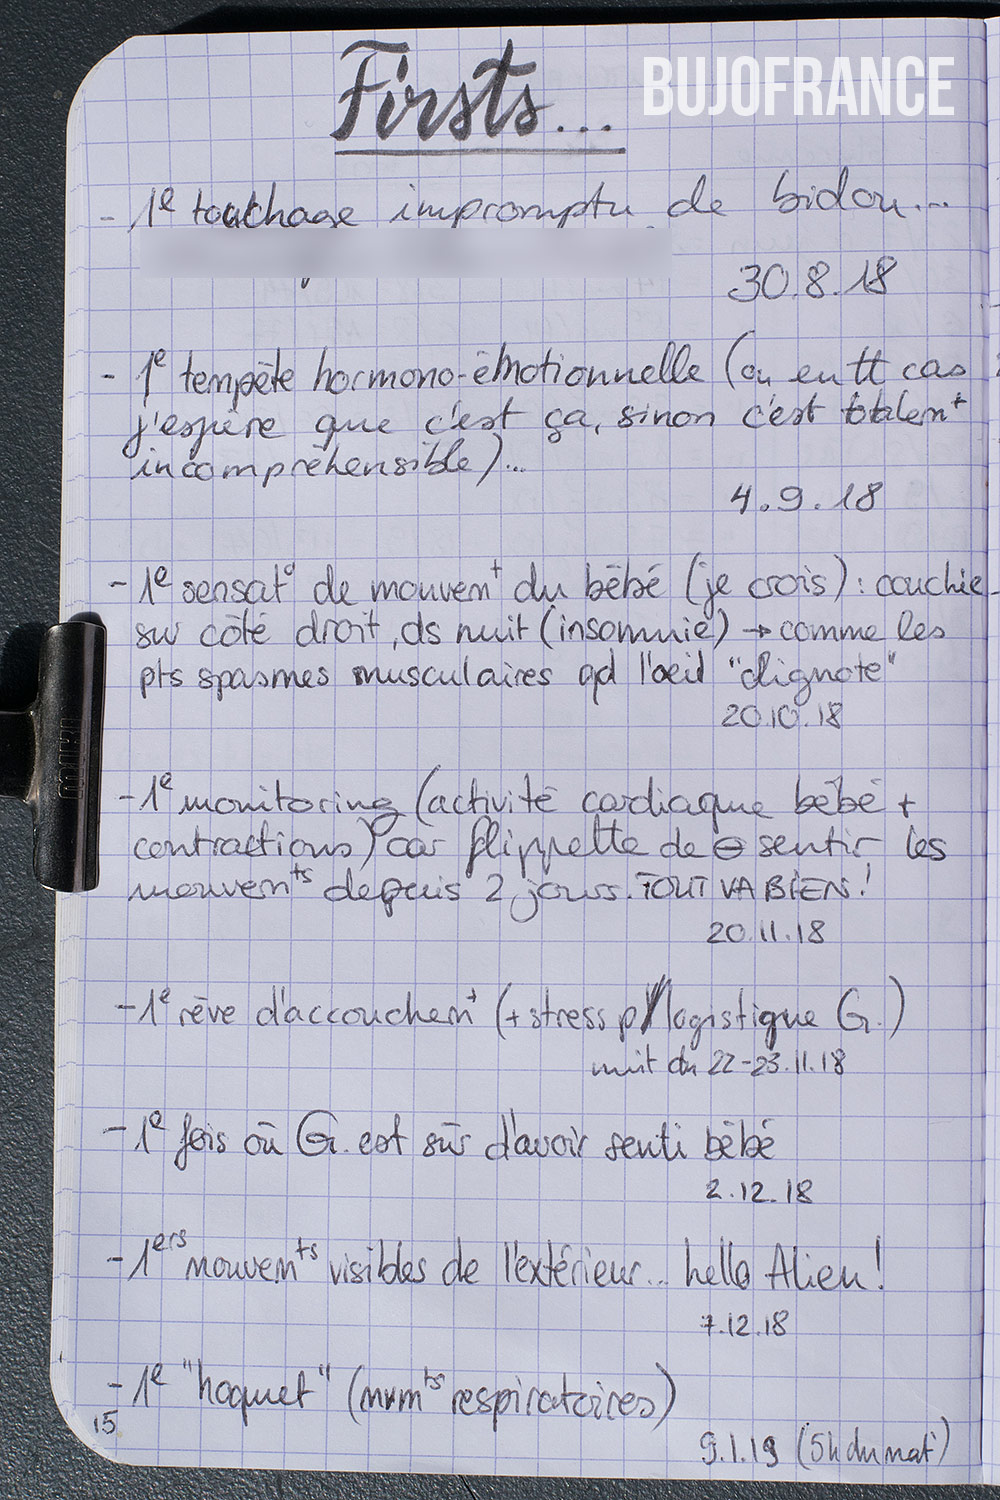 BUJOFRANCE
Firsts...
- 1e touchage impromptu de bidou...
30.8.18
- 1e tempête hormono-émotionnelle (ou en tt cas
j'espère que c'est ça, sinon c'est totalemt
incompréhensible)...
4.9.18
- 1e sensat° de mouvemt du bébé (je crois) : couchée
sur côté droit, ds nuit (insomnie) → comme les
pts spasmes musculaires qd l'œil "clignote"
20.10.18
- 1e monitoring (activité cardiaque bébé +
contractions) car flippette de ⊖ sentir les
mouvemts depuis 2 jours. TOUT VA BIEN !
20.11.18
- 1e rêve d'accouchemt (+ stress p/ logistique G.)
nuit du 22-23.11.18
- 1e fois où G. est sûr d'avoir senti bébé
2.12.18
- 1ers mouvemts visibles de l'extérieur... hello Alien !
7.12.18
- 1e "hoquet" (mvmts respiratoires)
15
9.1.19 (5h du mat')
MIKI